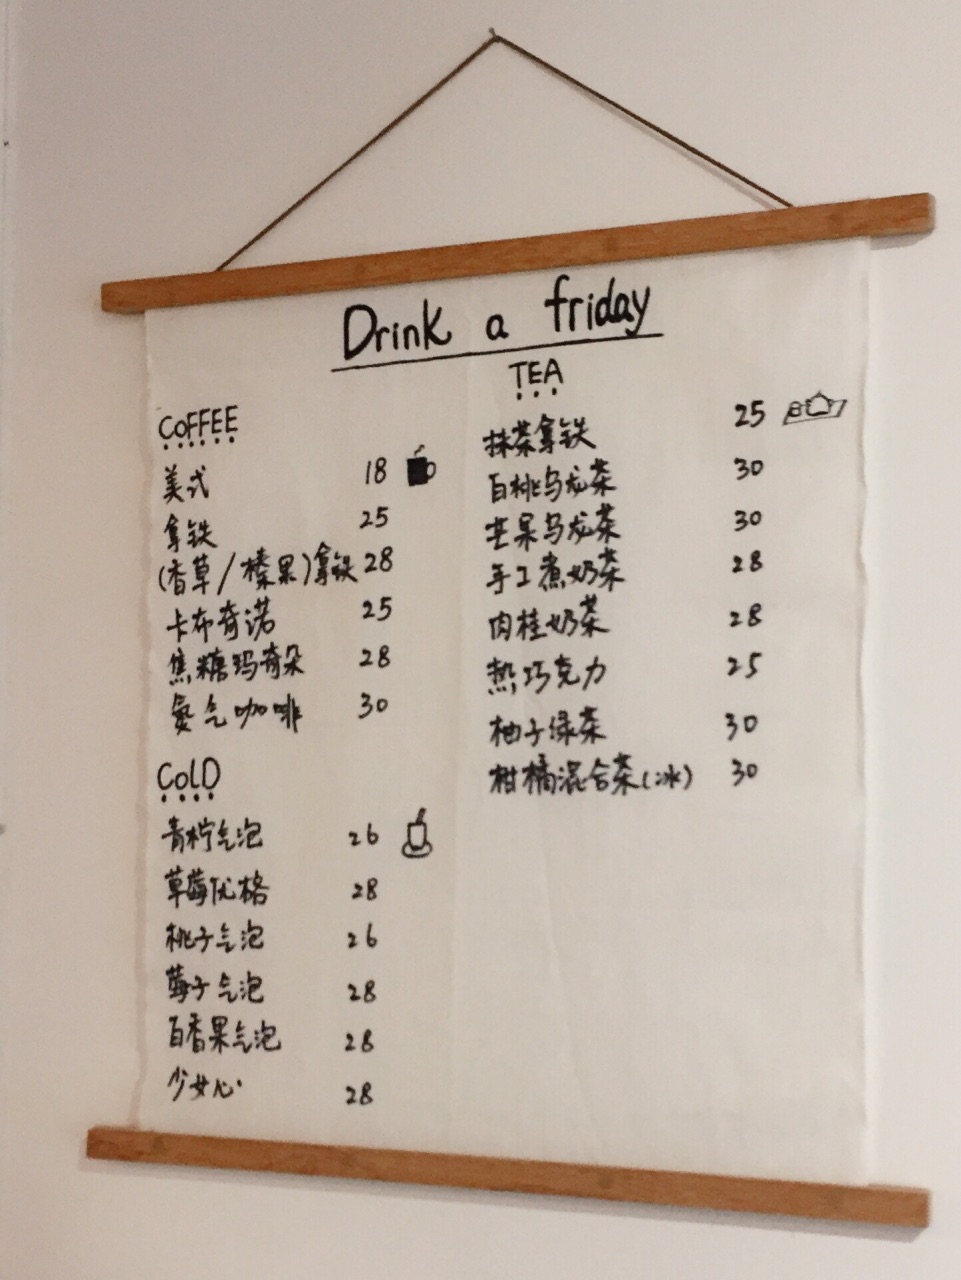 Drink a friday
COFFEE
美式 18
拿铁 25
(香草/榛果)拿铁 28
卡布奇诺 25
焦糖玛奇朵 28
氮气咖啡 30
COLD
青柠气泡 26
草莓优格 28
桃子气泡 26
莓子气泡 28
百香果气泡 28
少女心 28
TEA
抹茶拿铁 25
白桃乌龙茶 30
芒果乌龙茶 30
手工煮奶茶 28
肉桂奶茶 28
热巧克力 25
柚子绿茶 30
柑橘混合茶(冰) 30